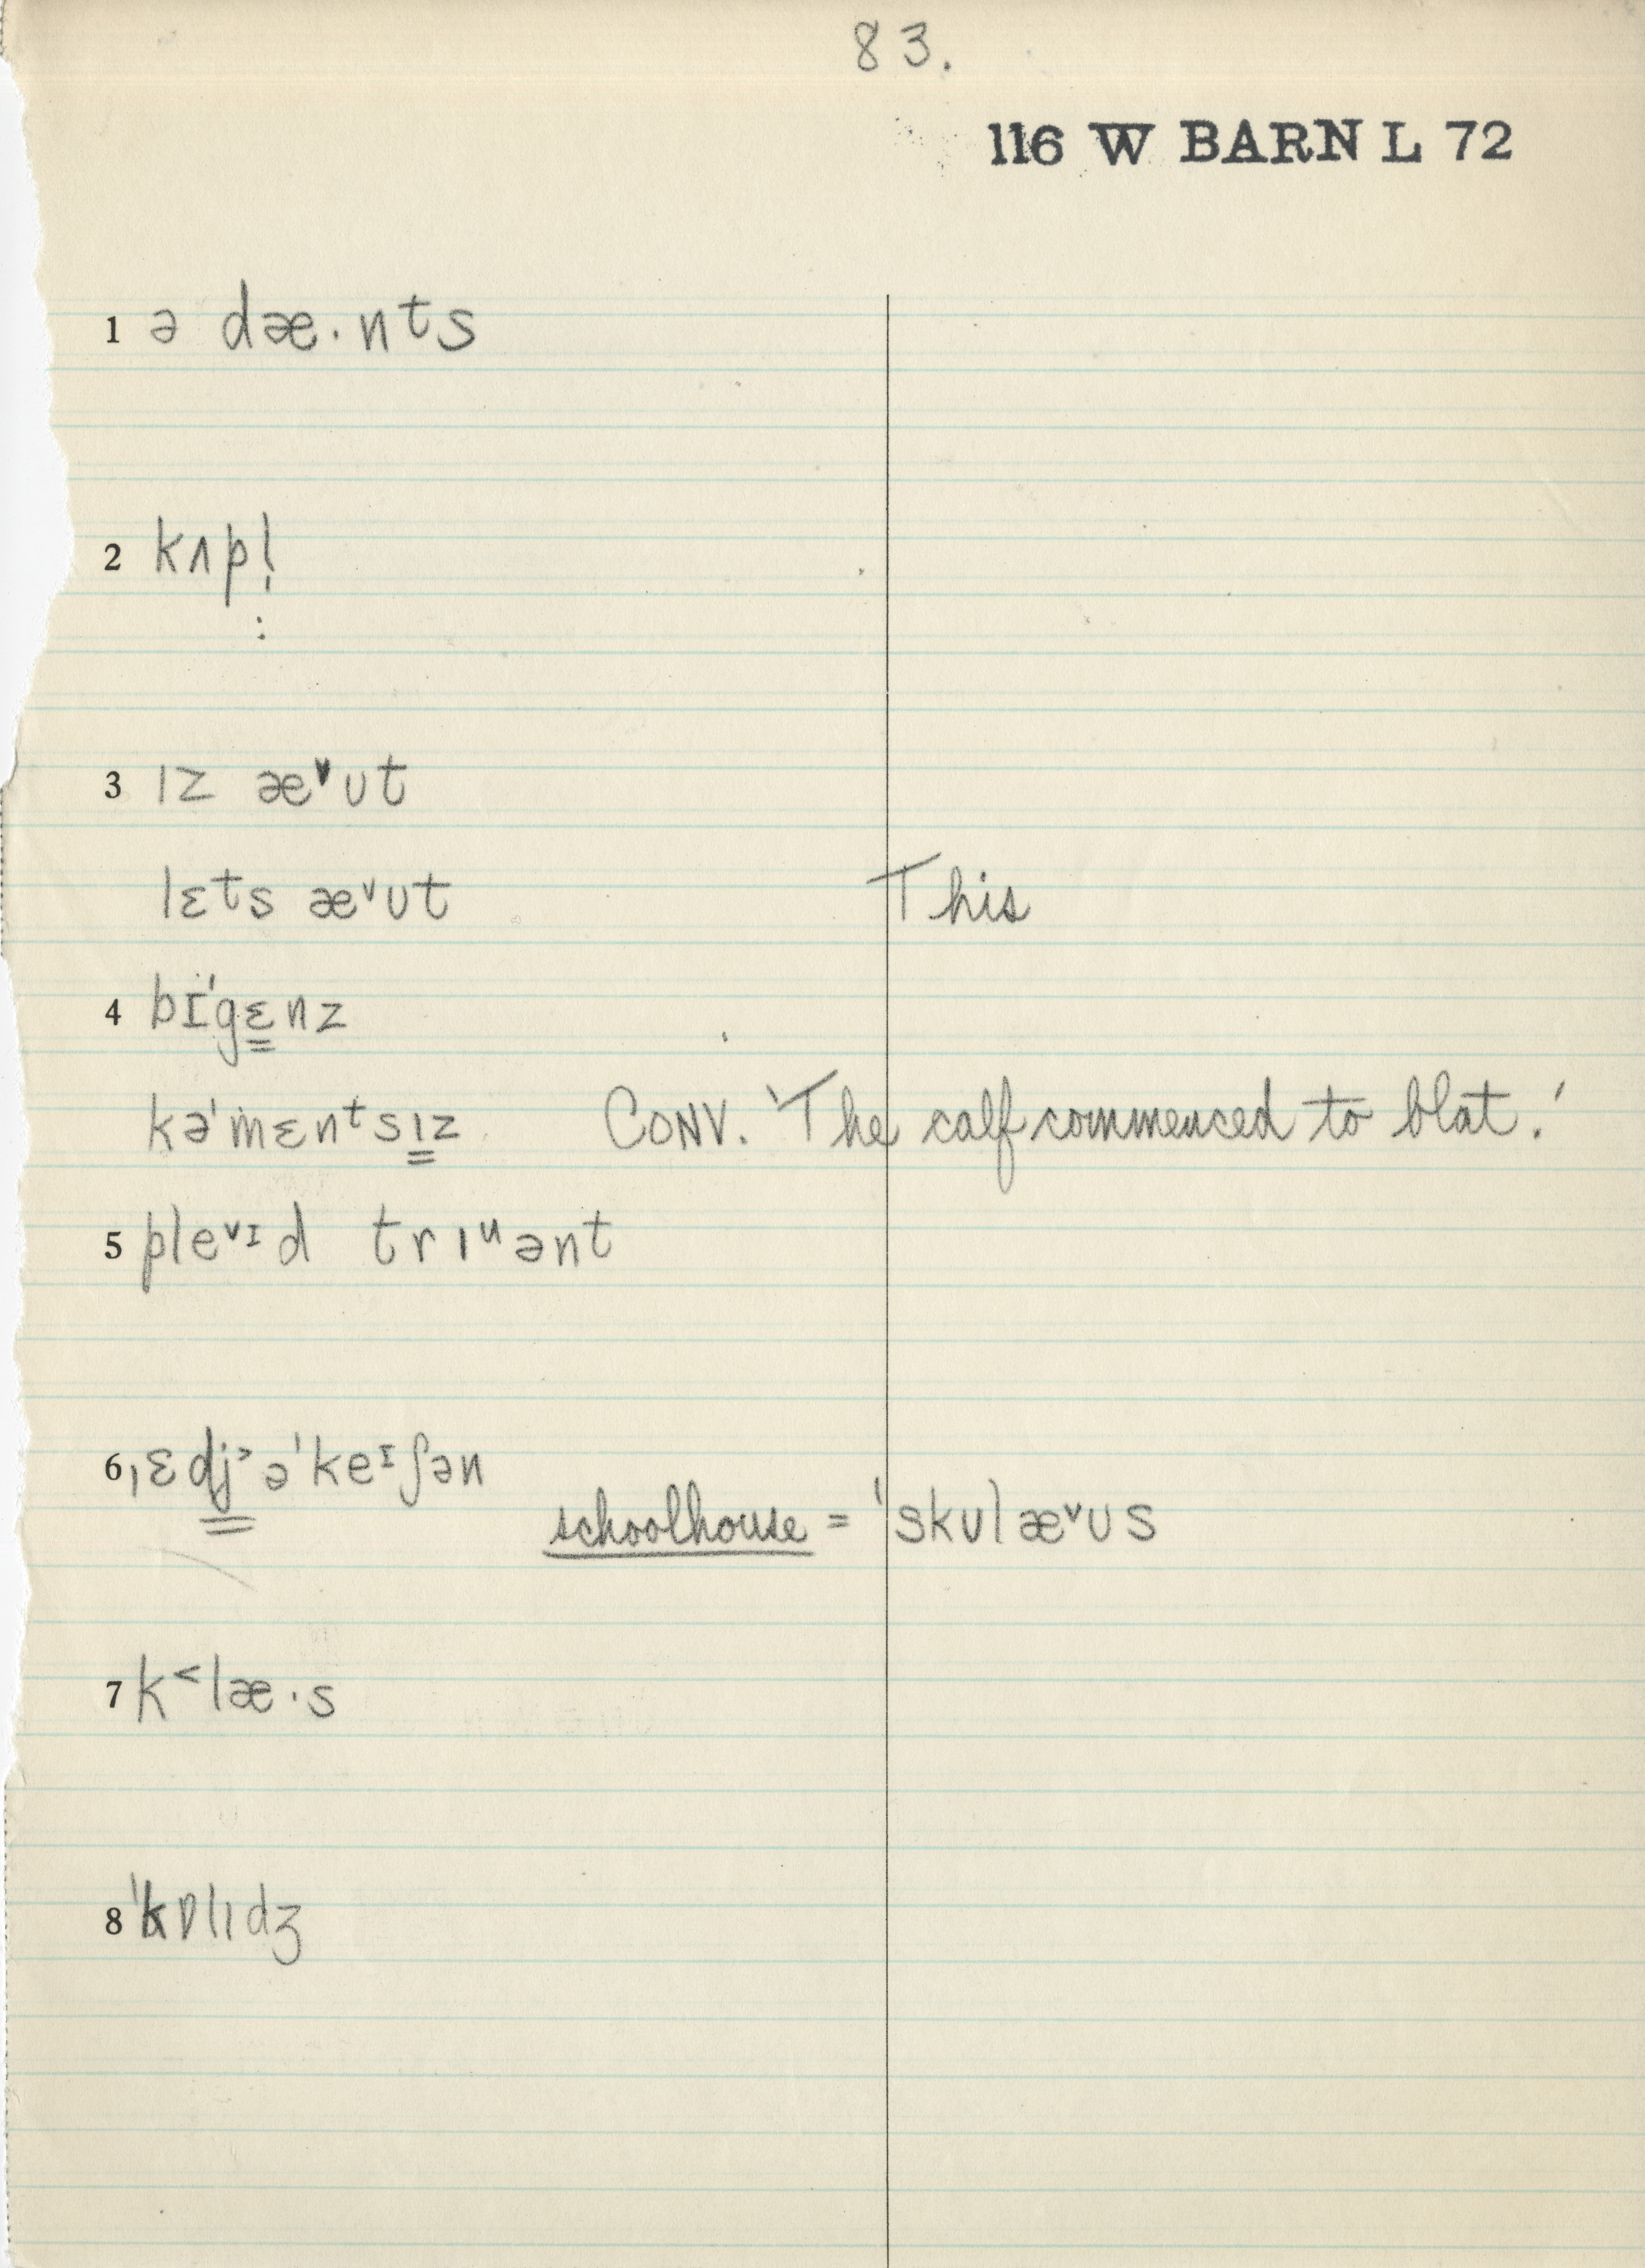 83.
116 W BARN L 72
1 ə dæ·nᵗs
2 kʌpl̩
:
3 ɪz æᵛʊt
lɛᵗs æᵛʊt This
4 bɪ̈'gɛnz
kə'mɛnᵗsɪz CONV. 'The calf commenced to blat.'
5 pleᵛᶦd trɪᵘənt
6 ˌɛdj˃ə'keᶦʃən
schoolhouse = 'skʊlæᵛʊs
7 k˂læ·s
8 'kɒlɪdʒ